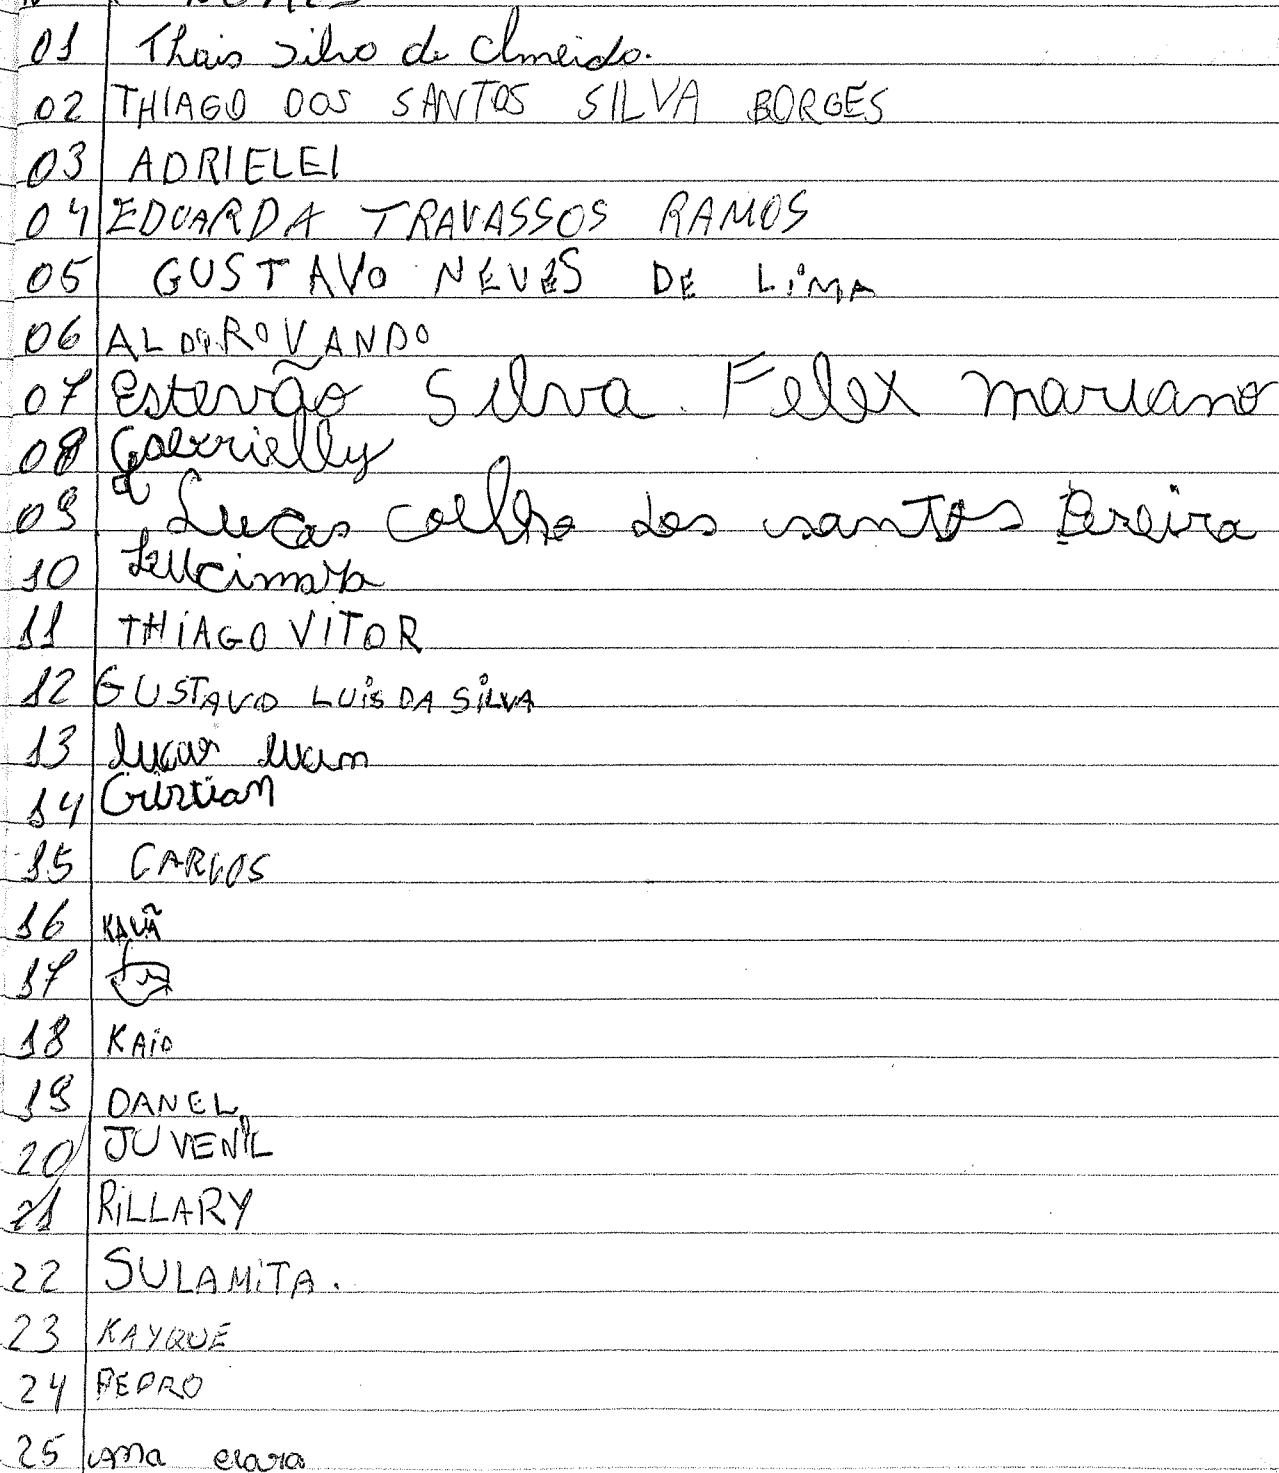 Nº NOMES
01 Thais Silva de Almeida.
02 THIAGO DOS SANTOS SILVA BORGES
03 ADRIELEI
04 EDUARDA TRAVASSOS RAMOS
05 GUSTAVO NEVES DE LIMA
06 ALDROVANDO
07 Estevão Silva Felex mariano
08 Gabrielly
09 Lucas Coelho dos santos Pereira
10 Lucimara
11 THIAGO VITOR
12 GUSTAVO LUIS DA SILVA
13 lucas
14 Cristian
15 CARLOS
16 KAUÃ
17
18 KAIO
19 DANEL
20 JUVENIL
21 RILLARY
22 SULAMITA.
23 KAYQUE
24 PEDRO
25 Ana clara